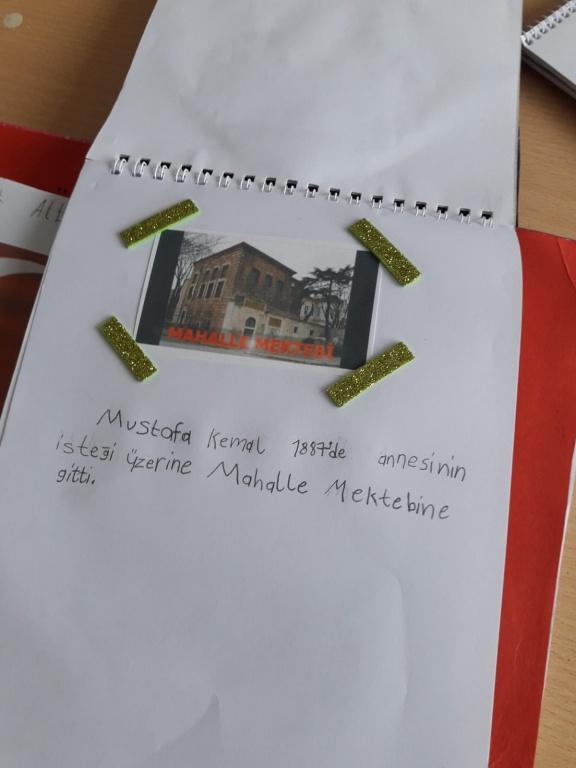 MAHALLE MEKTEBİ
Mustafa Kemal 1887'de annesinin
isteği üzerine Mahalle Mektebine
gitti.